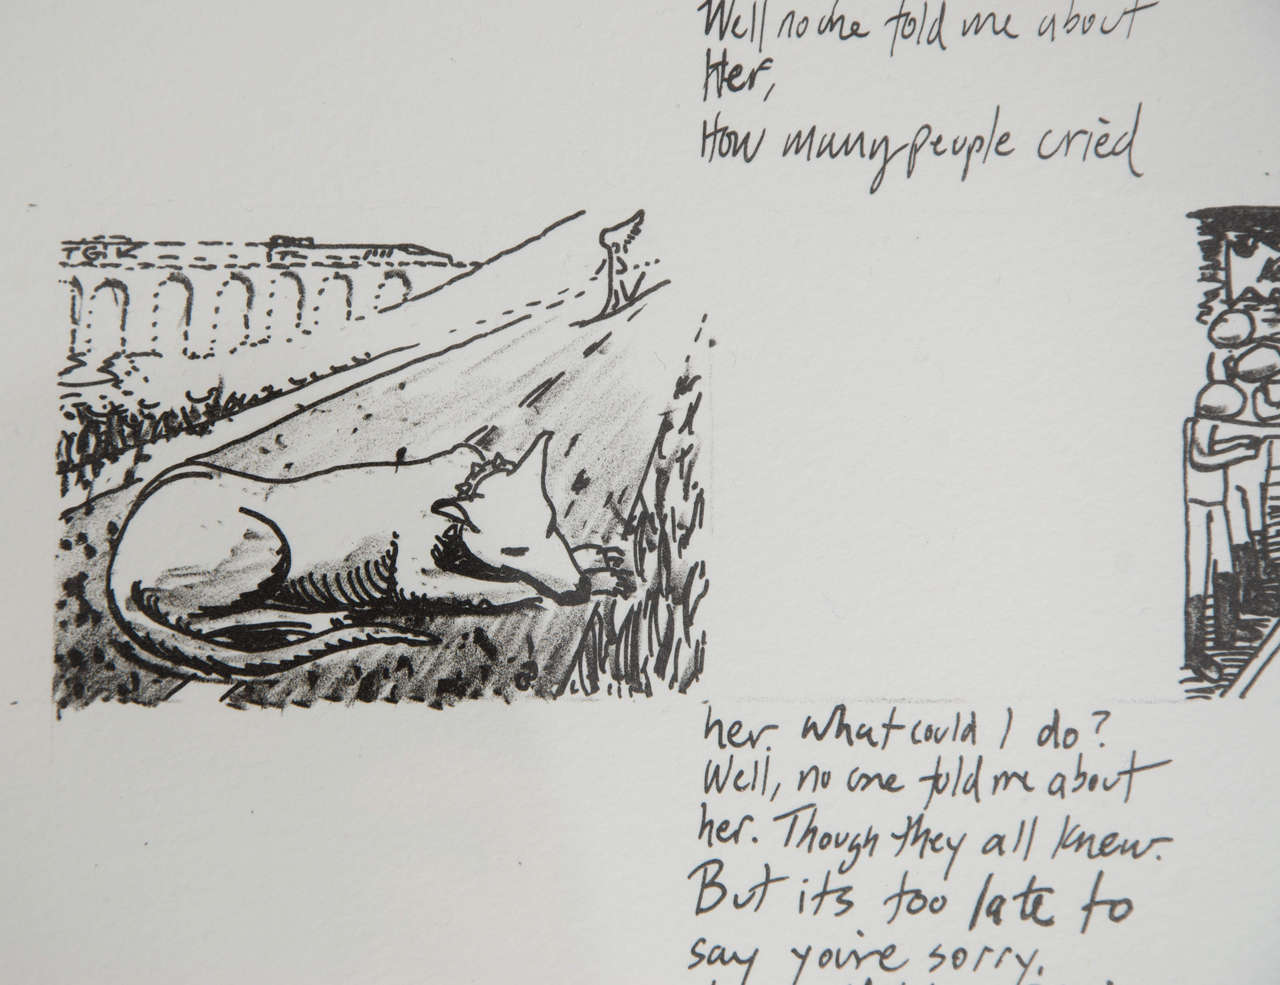 Well no one told me about
Her,
How many people cried
TGK
her. What could I do?
Well, no one told me about
her. Though they all knew.
But its too late to
say you're sorry.